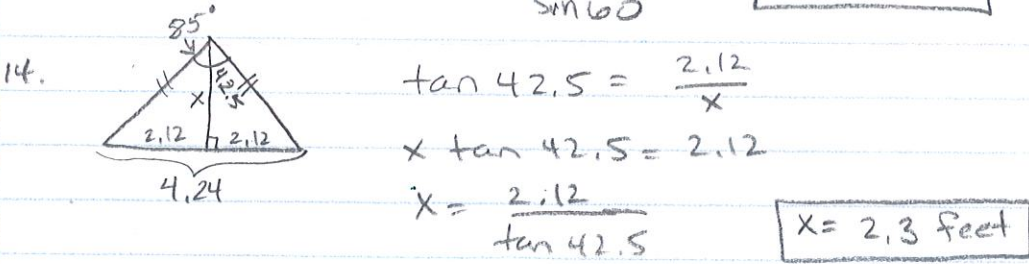 sin 60
14.
85°
42.5
x
2.12 2.12
4.24
tan 42.5 = 2.12 / x
x tan 42.5 = 2.12
x = 2.12 / tan 42.5
x = 2.3 feet